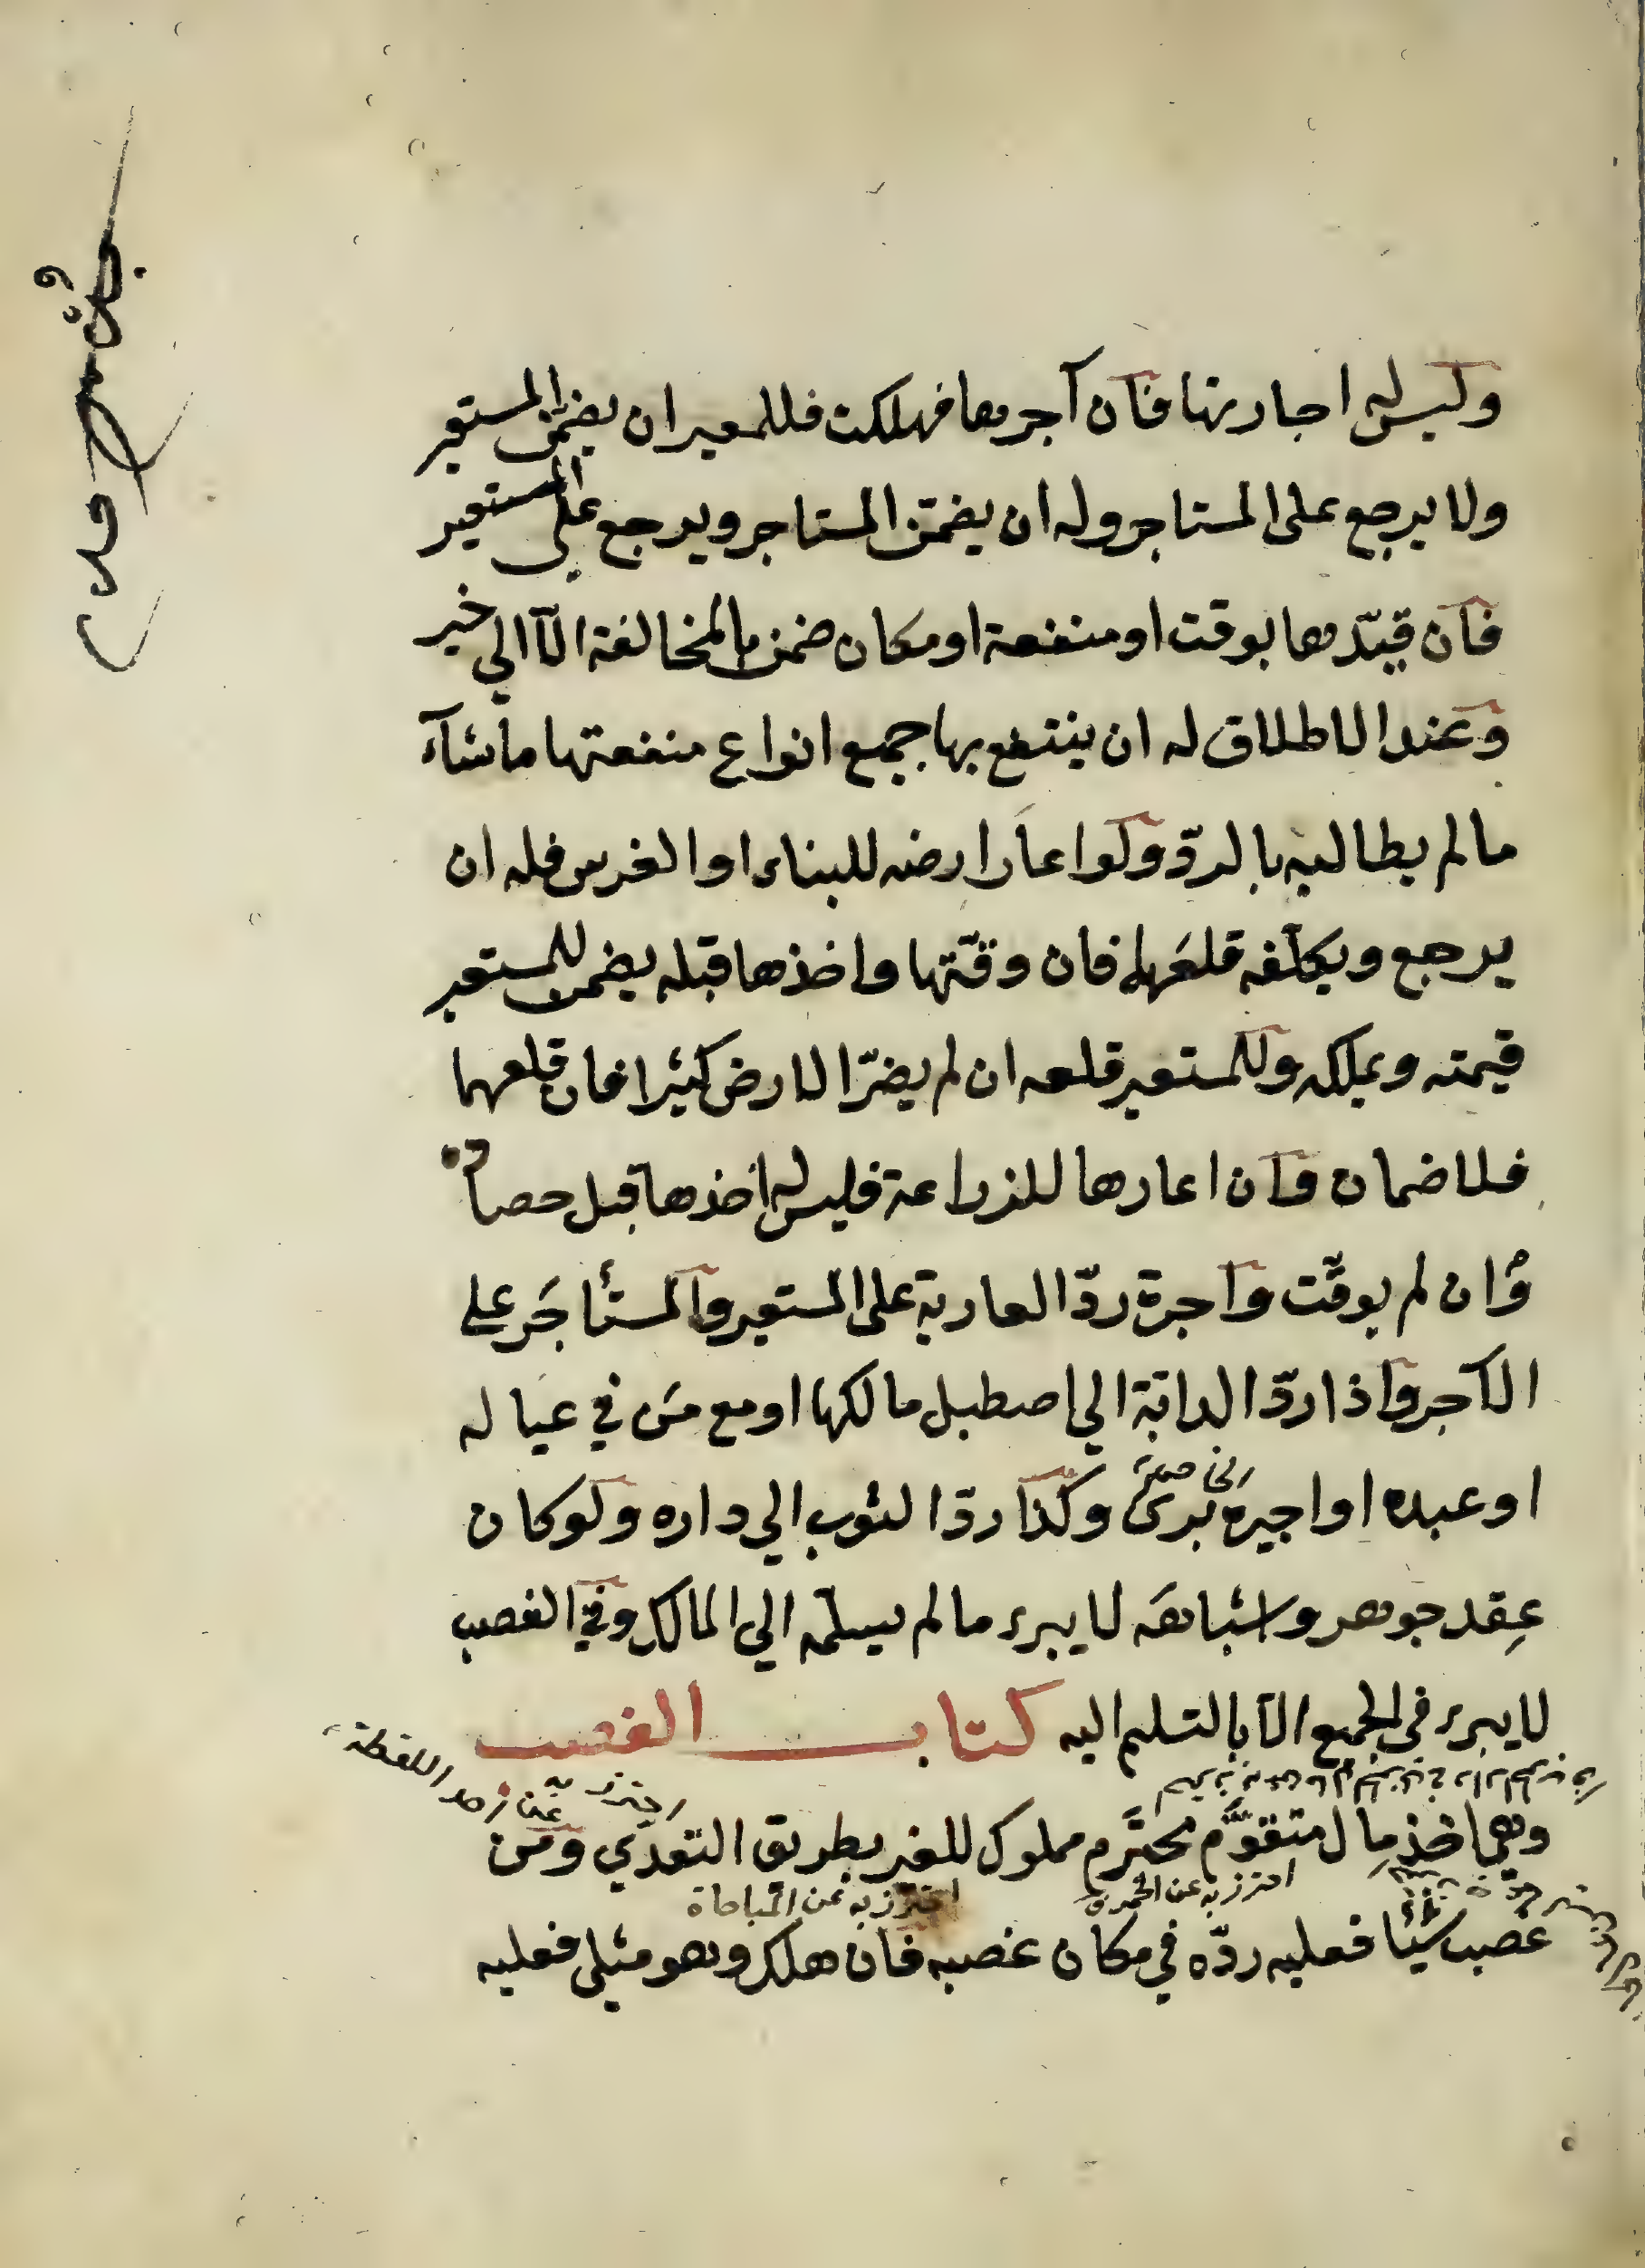 وليس له اجارتها فان آجرها فهلكت فللمعير ان يضمّن المستعير
ولا يرجع على المستاجر وله ان يضمّن المستاجر ويرجع على المستعير
فان قيّدها بوقت او منفعة او مكان ضمن بالمخالفة الّا الي خير
وعند الاطلاق له ان ينتفع بها جميع انواع منفعتها ما شآء
ما لم يطالبه بالردّ ولو اعار ارضه للبناء او الغرس فله ان
يرجع ويكلّفه قلعَها فان وقّتها واخذها قبله يضمن للمستعير
قيمته ويملكه وللمستعير قلعه ان لم يضرّ الارض كثيرا فان قلعهما
فلا ضمان وان اعارها للزراعة فليس له اخذها قبل حصاده
وان لم يوقّت واجرة ردّ العارية على المستعير والمستأجَر على
الآجر واذا ردّ الدابّة الي اصطبل مالكها او مع مَن في عياله
او عبده او اجيره برئ وكذا ردّ الثوب الي داره ولو كان
عِقد جوهر واشباهَه لا يبرء ما لم يسلّمه الي المالك وفي الغصب
لا يبرء في الجميع الّا بالتسليم اليه كتاب الغصب
احترز به عن اخذ اللقطة
وهو اخذ مال متقوَّم محترَم مملوك للغير بطريق التعدّي ومَن
احترز به عن الخمر
احترز به عن المباحاة
غصب شيئا فعليه ردّه في مكان غصبه فان هلك وهو مثلي فعليه